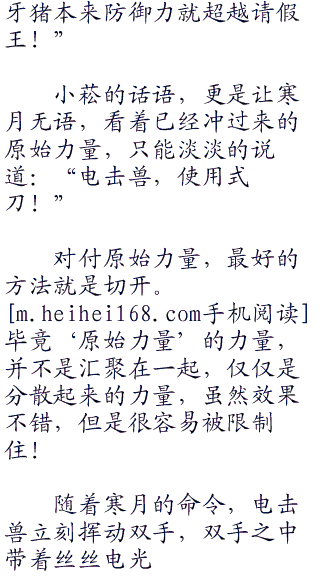 牙猪本来防御力就超越请假
王！”
小菘的话语，更是让寒
月无语，看着已经冲过来的
原始力量，只能淡淡的说
道：“电击兽，使用式
刀！”
对付原始力量，最好的
方法就是切开。
[m.heihei168.com手机阅读]
毕竟‘原始力量’的力量，
并不是汇聚在一起，仅仅是
分散起来的力量，虽然效果
不错，但是很容易被限制
住！
随着寒月的命令，电击
兽立刻挥动双手，双手之中
带着丝丝电光